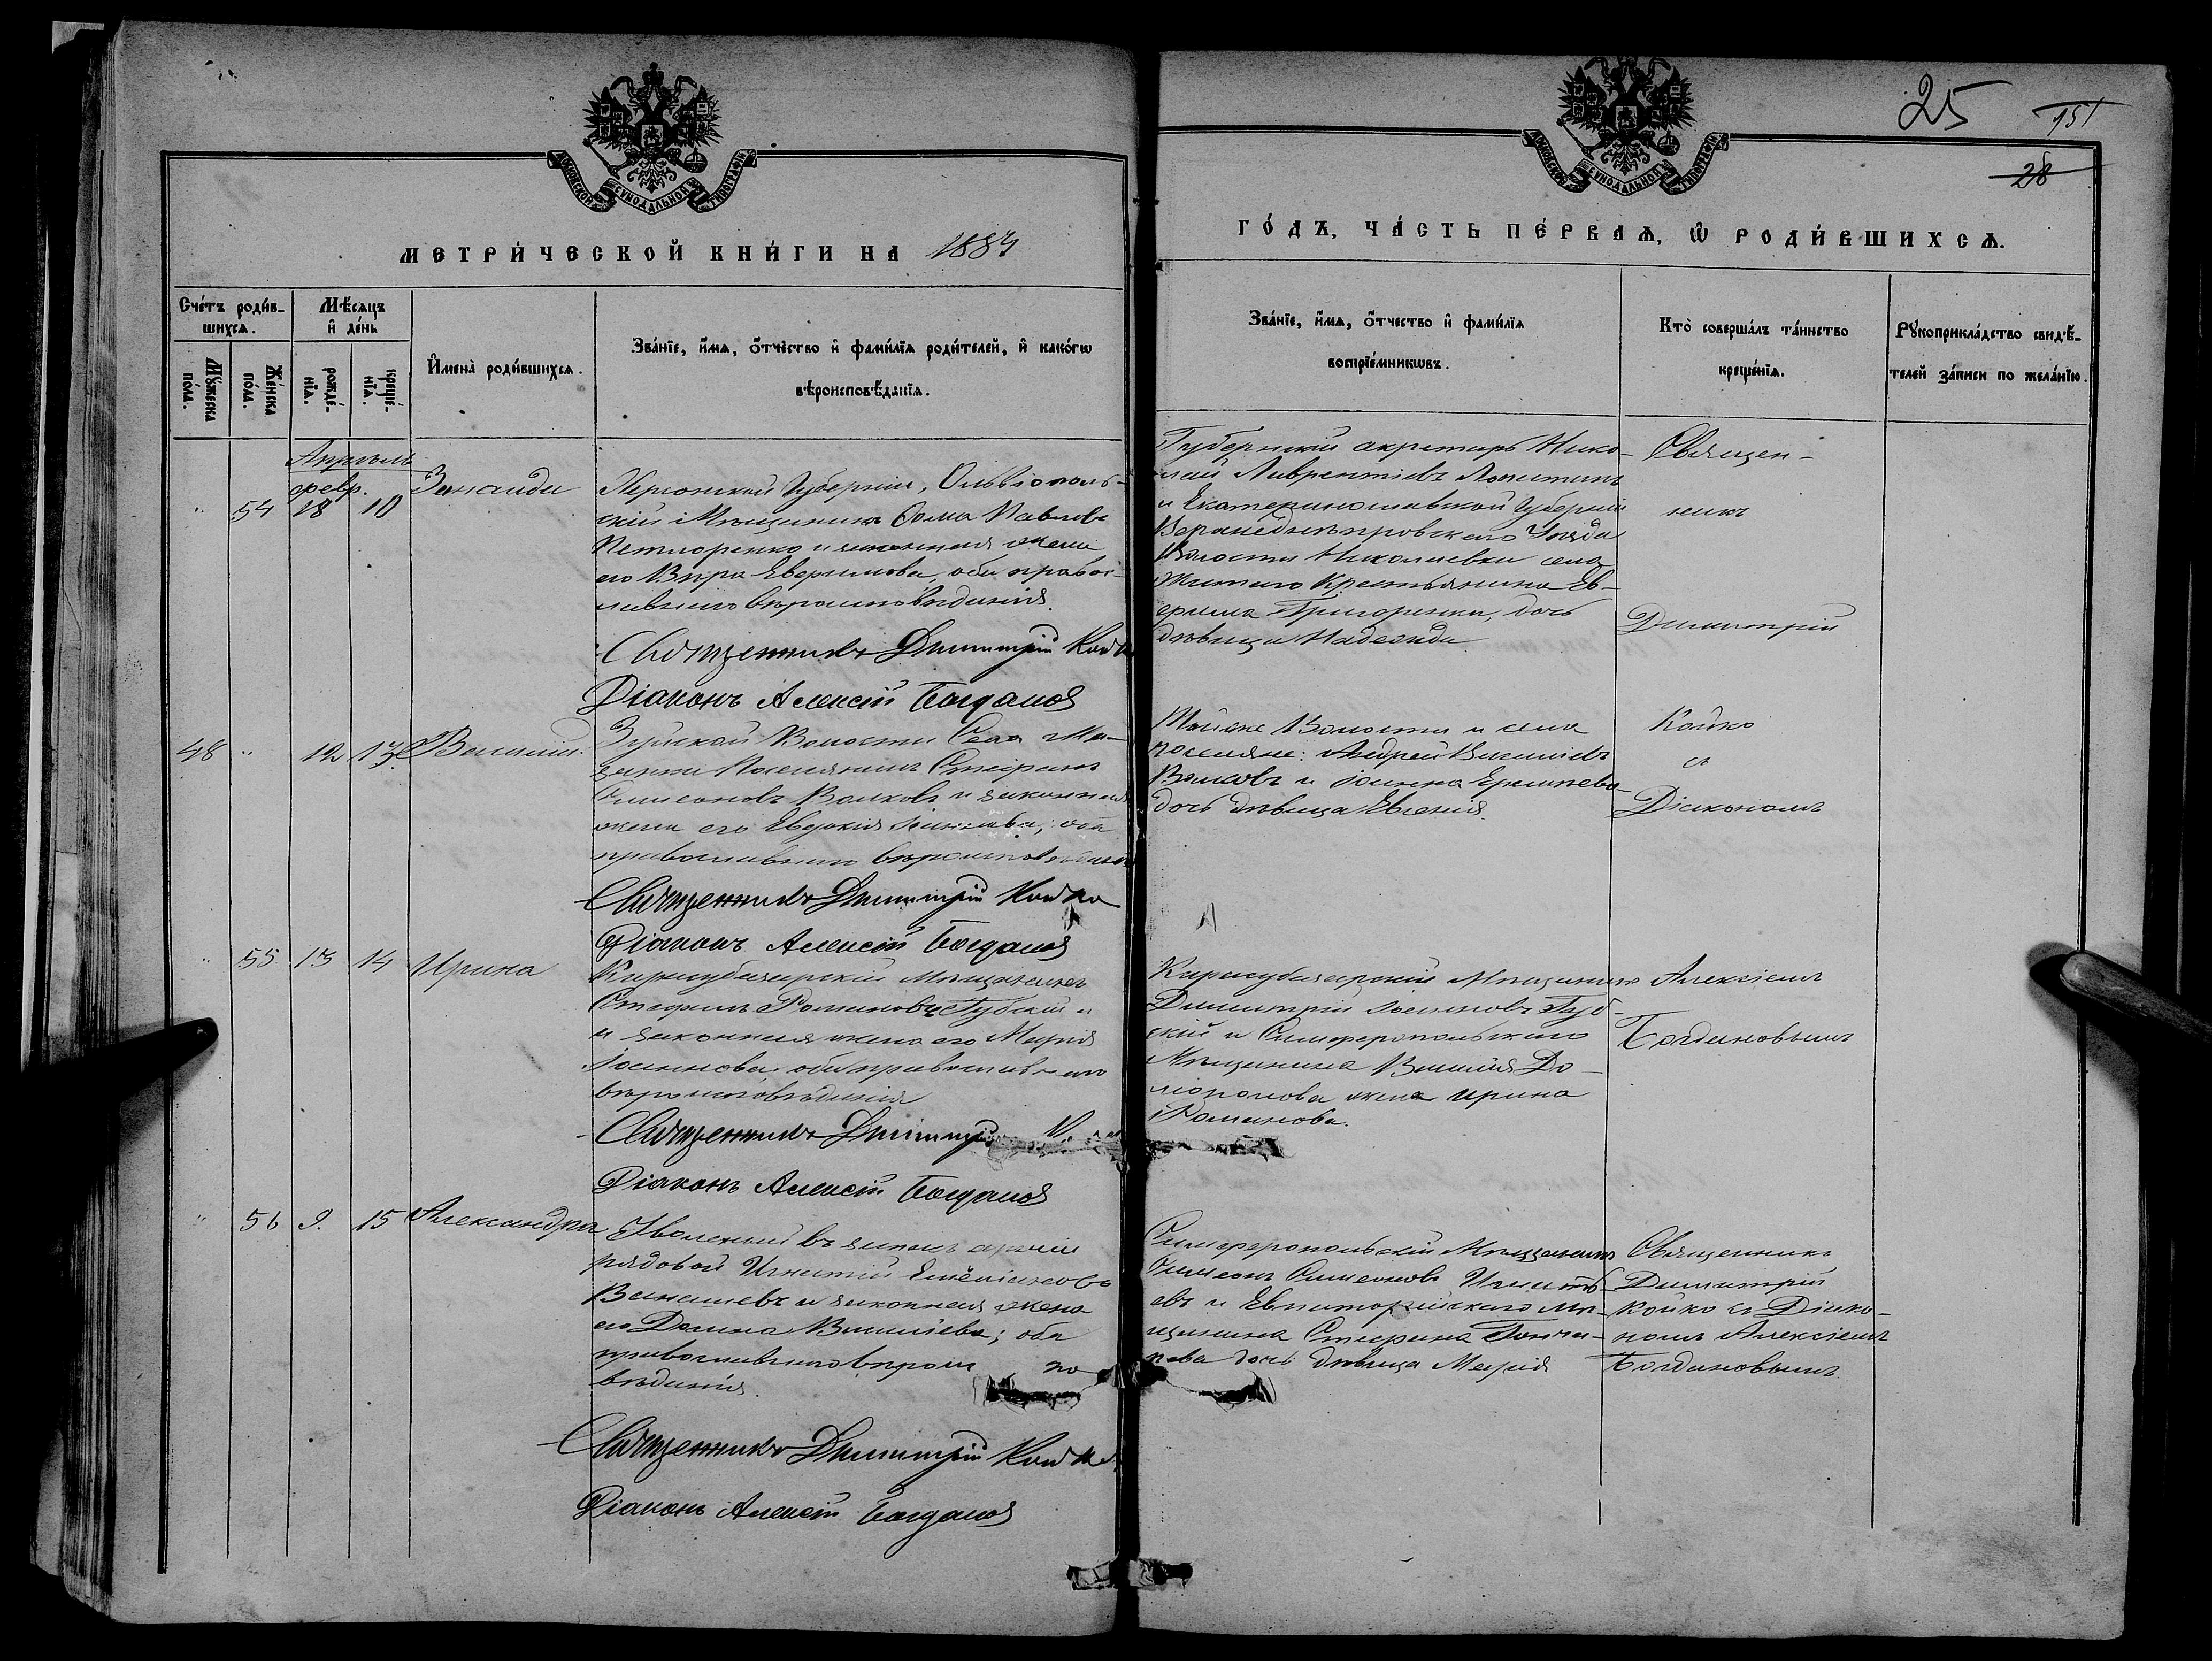 25
151
28
МОСКОВСКОЙ СѴНОДАЛЬНОЙ ТИПОГРАФІИ
МОСКОВСКОЙ СѴНОДАЛЬНОЙ ТИПОГРАФІИ
МЕТРИ́ЧЕСКОЙ КНИ́ГИ НА 1883
ГО́ДЪ, ЧА́СТЬ ПЕ́РВАѦ, Ѡ РОДИ́ВШИХСѦ.
Сче́тъ роди́в-
шихсѧ.
Мꙋ́жеска
по́ла.
Же́нска
по́ла.
Мѣ́сѧцъ
и де́нь
рожде́-
нїѧ.
креще́-
нїѧ.
Имена̀ роди́вшихсѧ.
Зва́нїе, и́мѧ, о́тчество и фами́лїѧ роди́телей, и како́гѡ
вѣроисповѣ́данїѧ.
Зва́нїе, и́мѧ, о́тчество и фами́лїѧ
воспрїе́мникѡвъ.
Кто̀ соверша́лъ та́инство
креще́нїѧ.
Рꙋкоприкла́дство свидѣ́-
телей за́писи по жела́нїю.
Апрѣль
февр.
54 18 10
Зинаида
Херсонской Губерніи, Ольвіополь-
скій Мѣщанинъ Ѳома Павловъ
Петлоренко и законная жена
его Вѣра Евфимова, оба правос-
лавнаго вѣроисповѣданія.
Священникъ Димитрій Койко
Діаконъ Алексій Богдановъ
Губернскій секретарь Нико-
лай Лаврентіевъ
и Екатеринославской Губерніи
Верхнеднѣпровскаго Уѣзда
Волости Николаевки села
Крестьянина Ев-
Григоренки, дочь
дѣвица Надежда
Священ-
никъ
Димитрій
48 12 13 Василій.
Зуйской Волости Села Ма-
занки Поселянинъ Стефанъ
Симеоновъ Волковъ и законная
жена его Евдокія; оба
православнаго вѣроисповѣданія
Священникъ Димитрій Койко
Діаконъ Алексій Богдановъ
Тойже Волости и села
поселяне: Андрей Василіевъ
Волковъ и
дочь дѣвица Евгенія.
Койко
съ
Діакономъ
55 13 14 Ирина
Карасубазарскій Мѣщанинъ
Стефанъ Романовъ Губскій и
и законная жена его Марія
Іоаннова; оба православнаго
вѣроисповѣданія
Священникъ Димитрій
Діаконъ Алексій Богдановъ
Карасубазарскій Мѣщанинъ
Димитрій Губ-
скій и Симферопольскаго
Мѣщанина Василія
жена Ирина
Романова.
Алексіемъ
Богдановымъ
56 9. 15 Александра
Уволенный въ запасъ арміи
рядовой Игнатій
и законная жена
его Домна Василіева; оба
православнаго вѣроиспо-
вѣданія.
Священникъ Димитрій Койко
Діаконъ Алексій Богдановъ
Симферопольскій Мѣщанинъ
Симеонъ Симеоновъ Игнать-
евъ и Евпаторійскаго Мѣ-
щанина Стефана Гонча-
рова дочь дѣвица Марія
Священникъ
Димитрій
Койко съ Діако-
номъ Алексіемъ
Богдановымъ